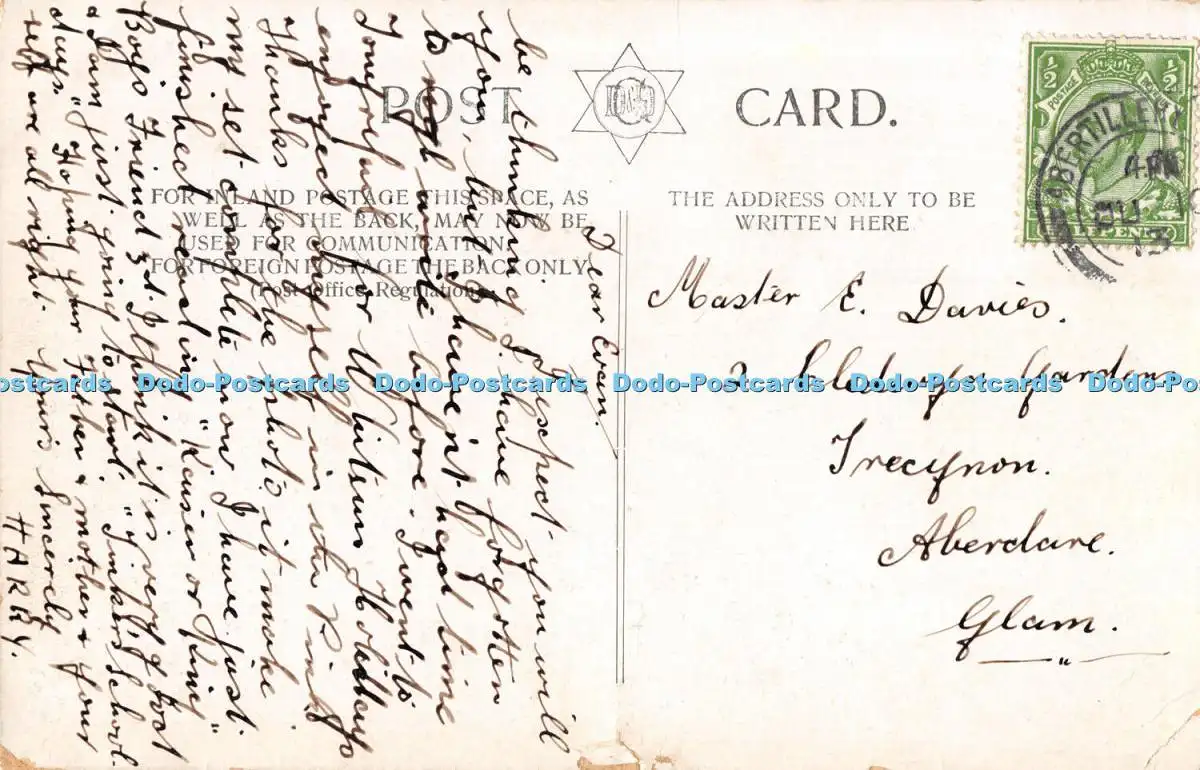 POST CARD.
FOR INLAND POSTAGE THIS SPACE, AS
WELL AS THE BACK, MAY NOW BE
USED FOR COMMUNICATION.
FOR FOREIGN POSTAGE THE BACK ONLY
(Post Office Regulation).
THE ADDRESS ONLY TO BE
WRITTEN HERE
Dear Evan.
I expect you will
be thinking I have forgotten
you, but I haven't had time
to write before. I went to
for Whitsun Holidays
enjoyed myself in the
Thanks for the photo it make
my set complete now I have just
finished reading "Kaiser or King"
Boys Friend 3d. I think it is very good
& I am just going to start. "Tinker's School
days" Hoping your Father & mother & your
self are all right. Yours Sincerely
HARRY.
Master E. Davies.
2 Gardens
Trecynon.
Aberdare.
Glam.
ABERTILLERY
13
½ ½
POSTAGE
HALFPENNY
Dodo-Postcards Dodo-Postcards Dodo-Postcards Dodo-Postcards Dodo-Postcards